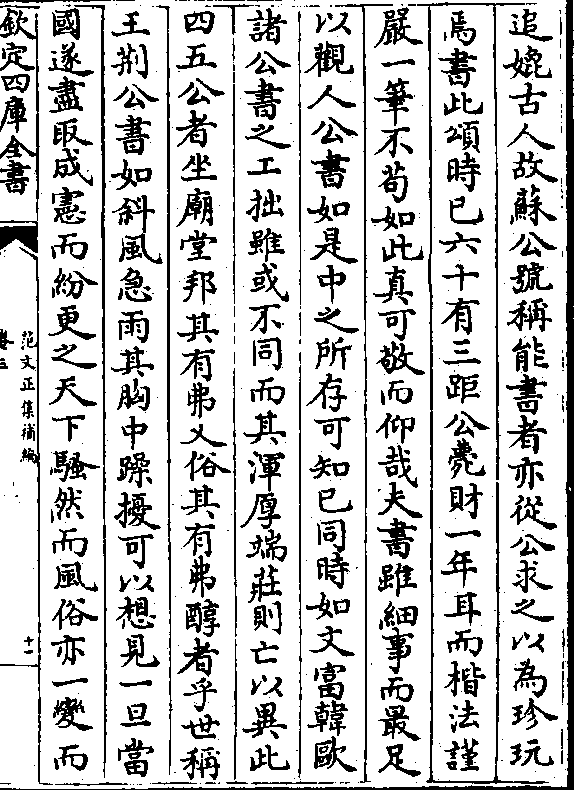 追媲古人故蘇公號稱能書者亦從公求之以為珍玩
焉書此頌時已六十有三距公薨財一年耳而楷法謹
嚴一筆不苟如此真可敬而仰哉夫書雖細事而最足
以觀人公書如是中之所存可知已同時如文富韓歐
諸公書之工拙雖或不同而其渾厚端莊則亡以異此
四五公者坐廟堂邦其有弗乂俗其有弗醇者乎世稱
王荆公書如斜風急雨其胸中躁擾可以想見一旦當
國遂盡取成憲而紛更之天下騷然而風俗亦一變而
欽定四庫全書
范文正集補編
卷三
十一